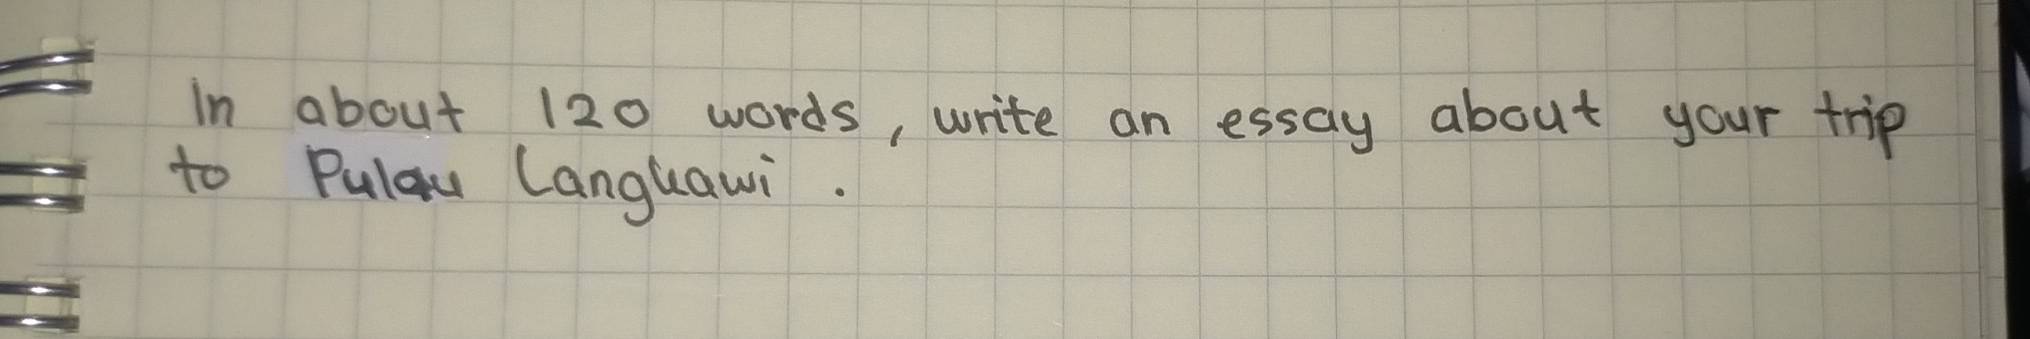 In about 120 words, write an essay about your trip
to Pulau Langkawi.